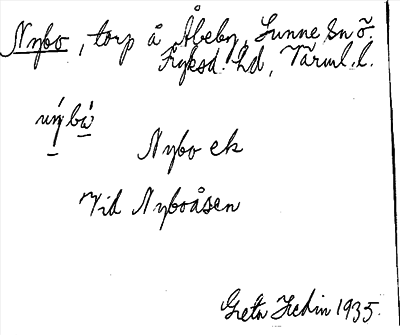 Nybo, torp å Åbeby, Sunne sn ö.
Fryksd. hd, Värml. l.
nýbò
Nybo ek
Vid Nyboåsen
Greta Hedin 1935.